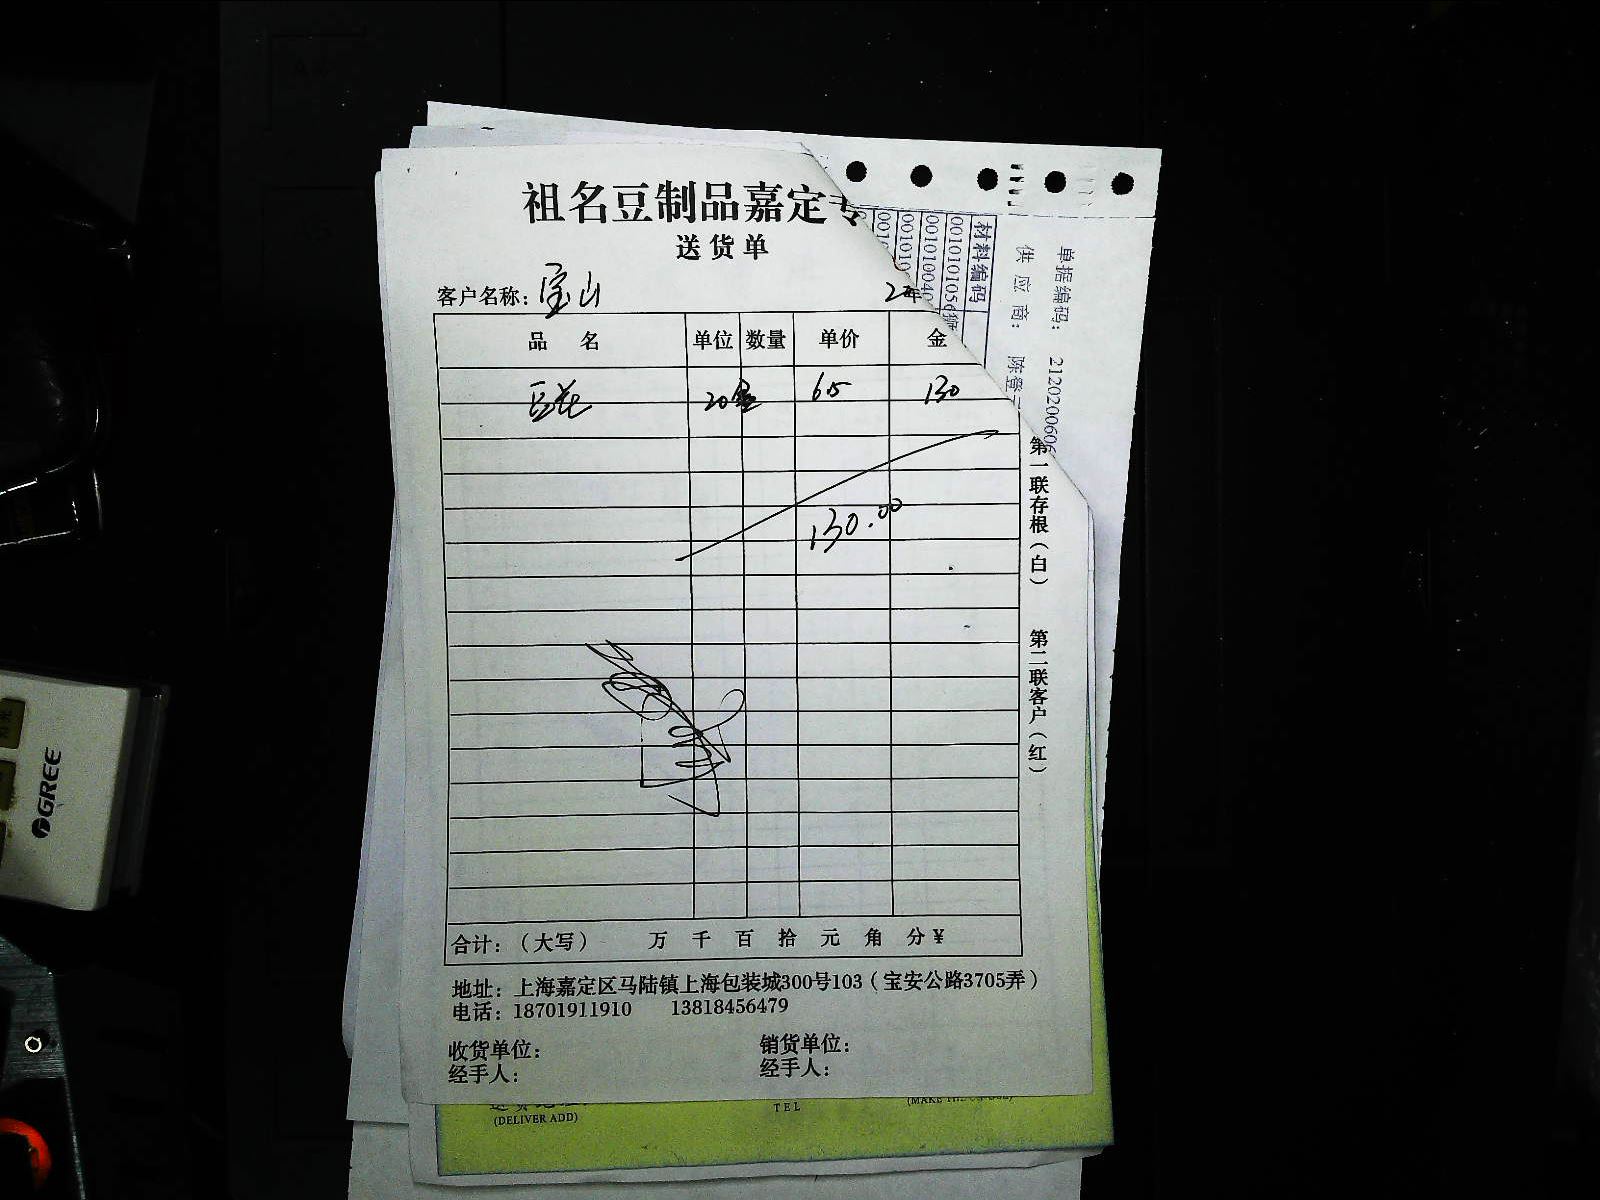 祖名豆制品嘉定
送货单
客户名称：宝山
2 年
品 名 单位 数量 单价 金
豆花 20盒 6.5 130
130.00
合计：（大写） 万 千 百 拾 元 角 分￥
地址：上海嘉定区马陆镇上海包装城300号103（宝安公路3705弄）
电话：18701911910 13818456479
收货单位： 销货单位：
经手人： 经手人：
第一联存根（白） 第二联客户（红）
单据编码： 212020060
供应商： 陈登
材料编码
0010101056
001010040
001010
001
(DELIVER ADD)
TEL
GREE